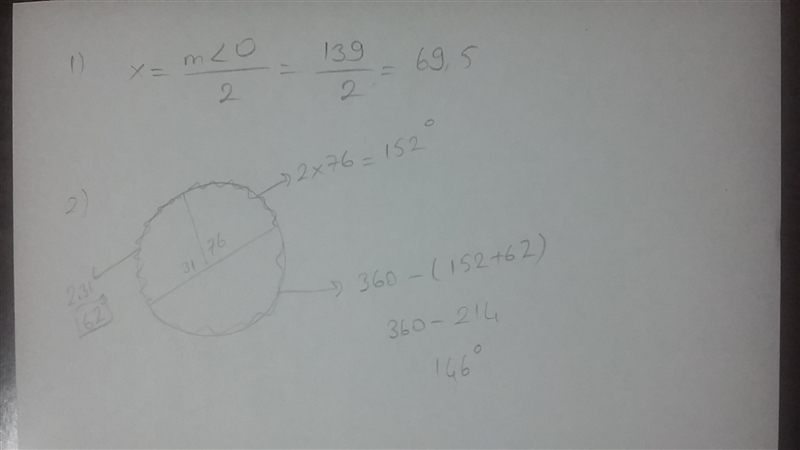 1) x = m<O / 2 = 139 / 2 = 69,5
2)
2×76 = 152°
76
31
2.31
62°
360 - (152+62)
360 - 214
146°